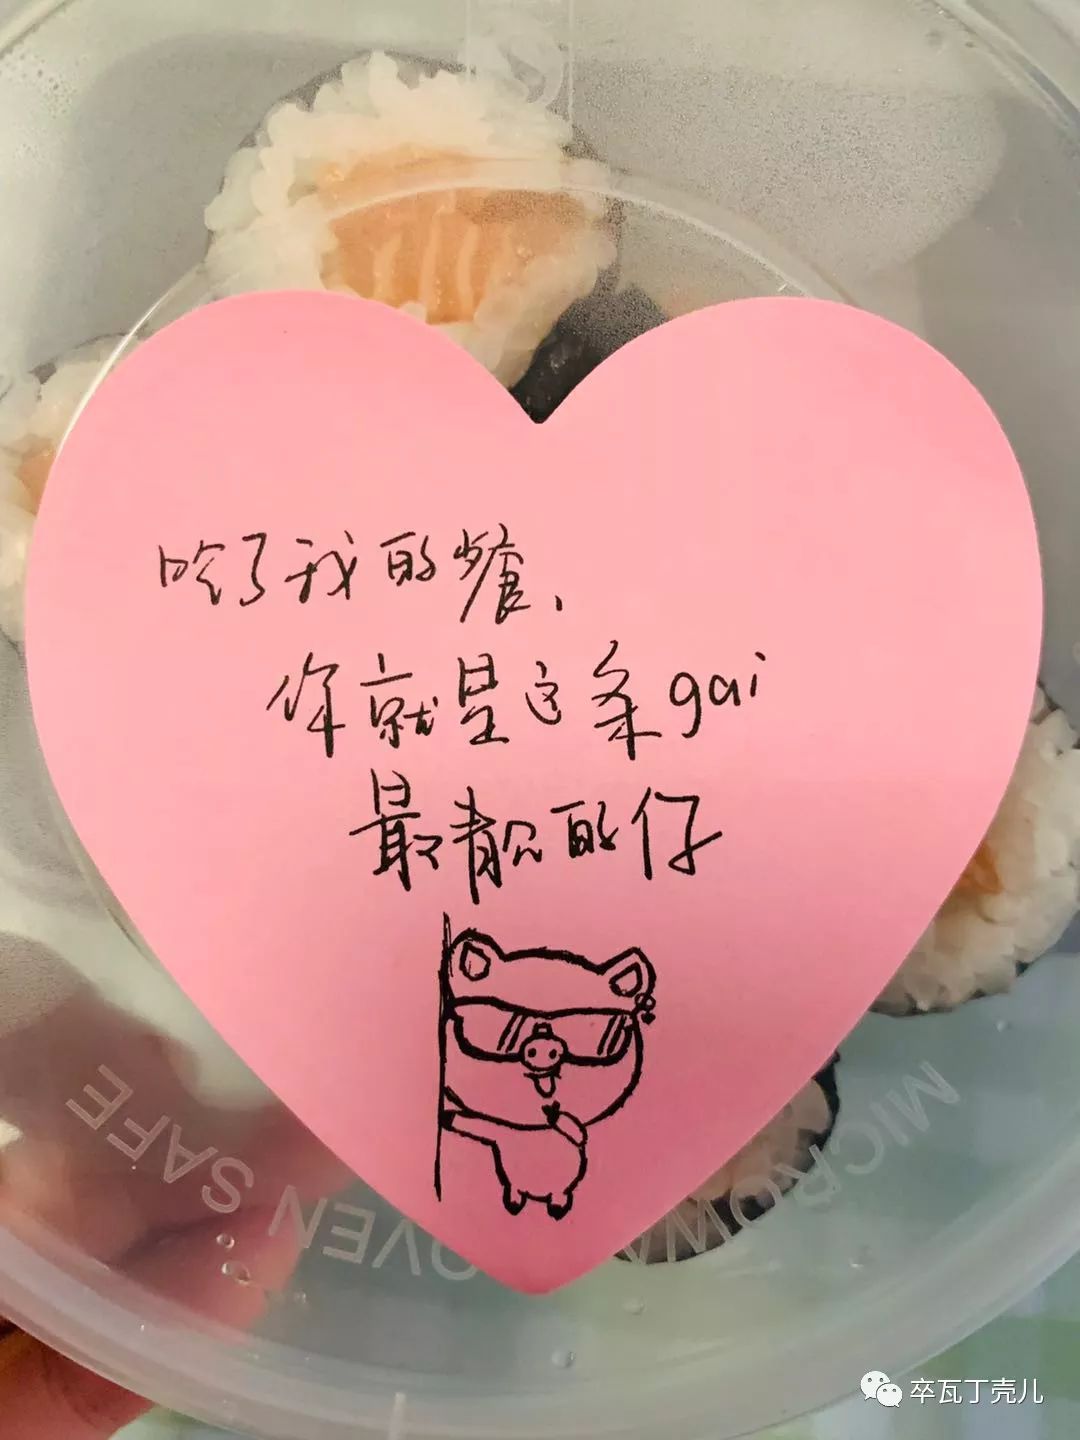 吃了我的餐,
你就是这条gai
最靓的仔
MICROWAVE OVEN SAFE
卒瓦丁壳儿